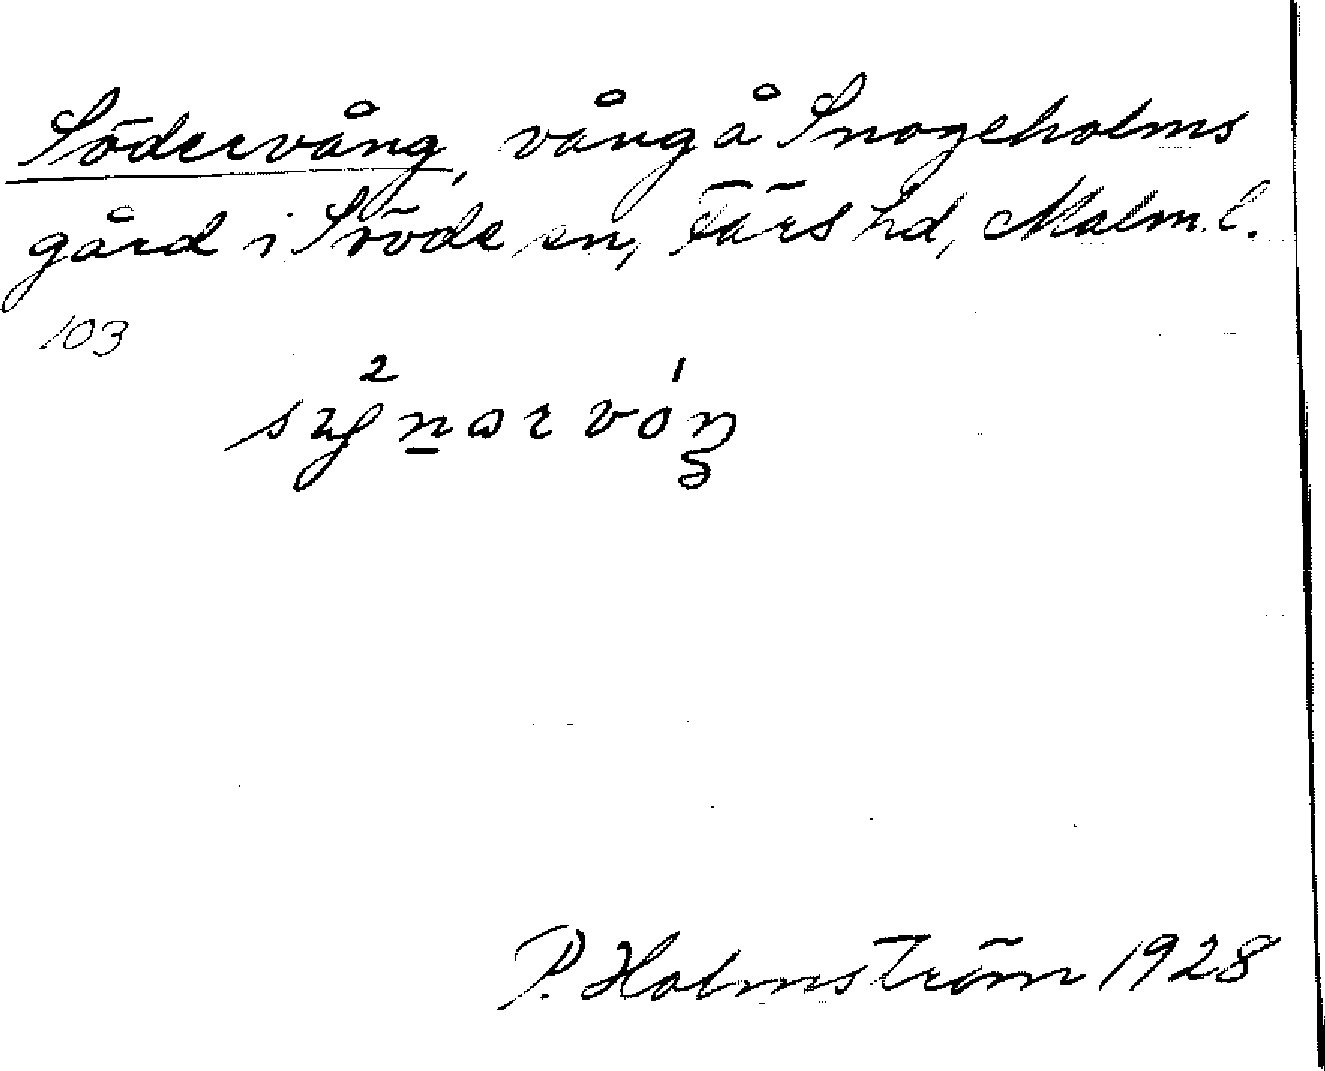 Södervång, vång å Snogeholms
gård i Sövde sn, Färs hd, Malm. l.
103
P. Holmström 1928